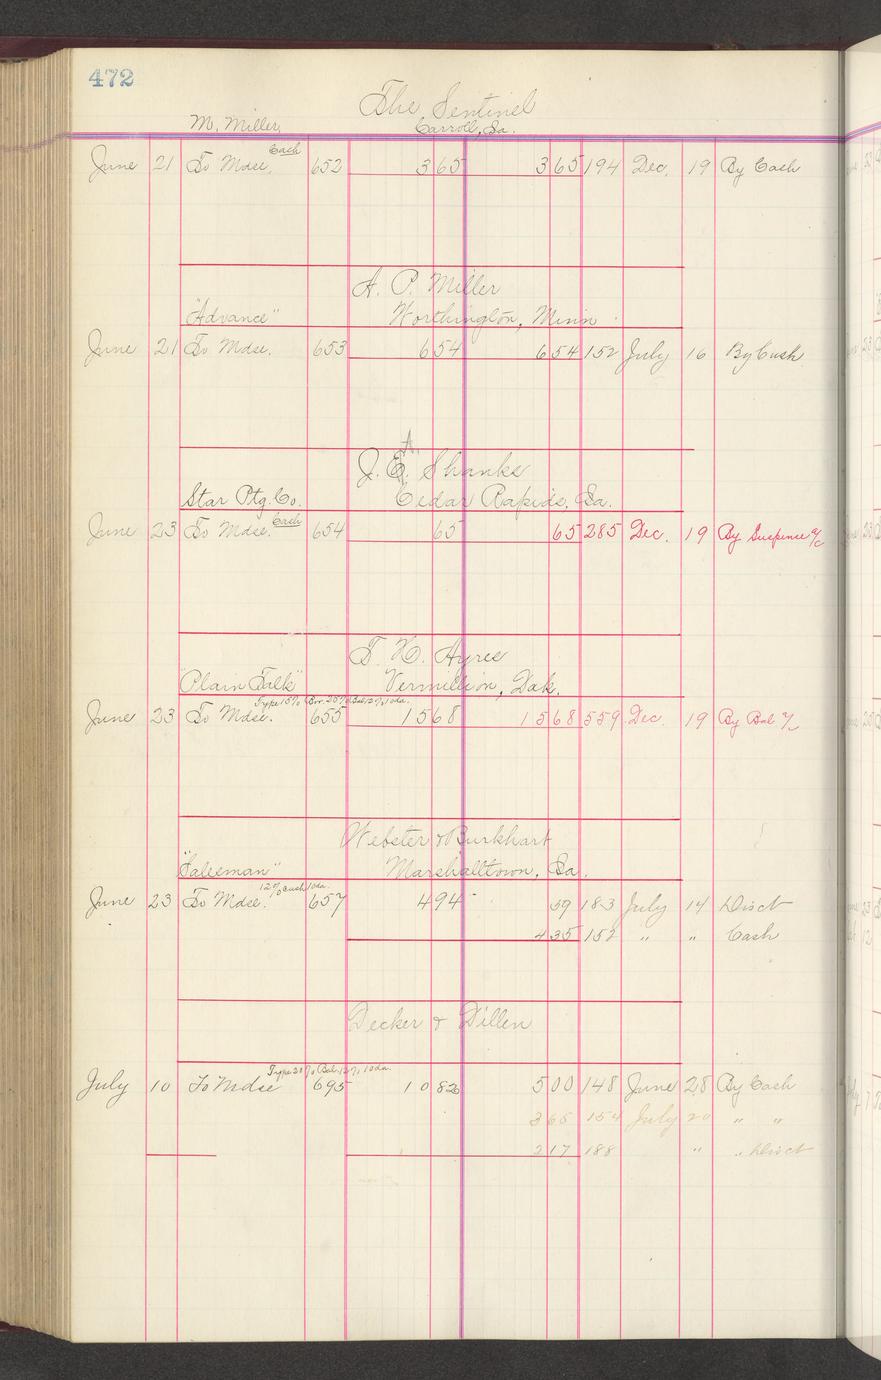 472
The Sentinel
M. Miller Carroll, Ia.
Cash
June 21 To Mdse. 652 3 65 3 65 194 Dec. 19 By Cash
A. P. Miller
"Advance" Worthington, Minn
June 21 To Mdse. 653 6 54 6 54 152 July 16 By Cash
A.
J. E. Shanks
Star Ptg. Co. Cedar Rapids, Ia.
Cash
June 23 To Mdse. 654 65 65 285 Dec. 19 By Suspense a/c
T. H. Ayres
"Plain Talk" Vermillion, Dak.
Type 15% Bor. 25% Bal 12% 10da.
June 23 To Mdse. 655 15 68 15 68 559 Dec. 19 By Bal a/c
Webster & Burkhart
"Salesman" Marshalltown, Ia.
12% Cash 10da.
June 23 To Mdse. 657 4 94 59 183 July 14 Disct
4 35 152 " " Cash
Decker & Dillen
Type 20% Bal. 12% 10da.
July 10 To Mdse 695 10 82 5 00 148 June 28 By Cash
3 65 154 July 20 " "
2 17 188 " " Disct